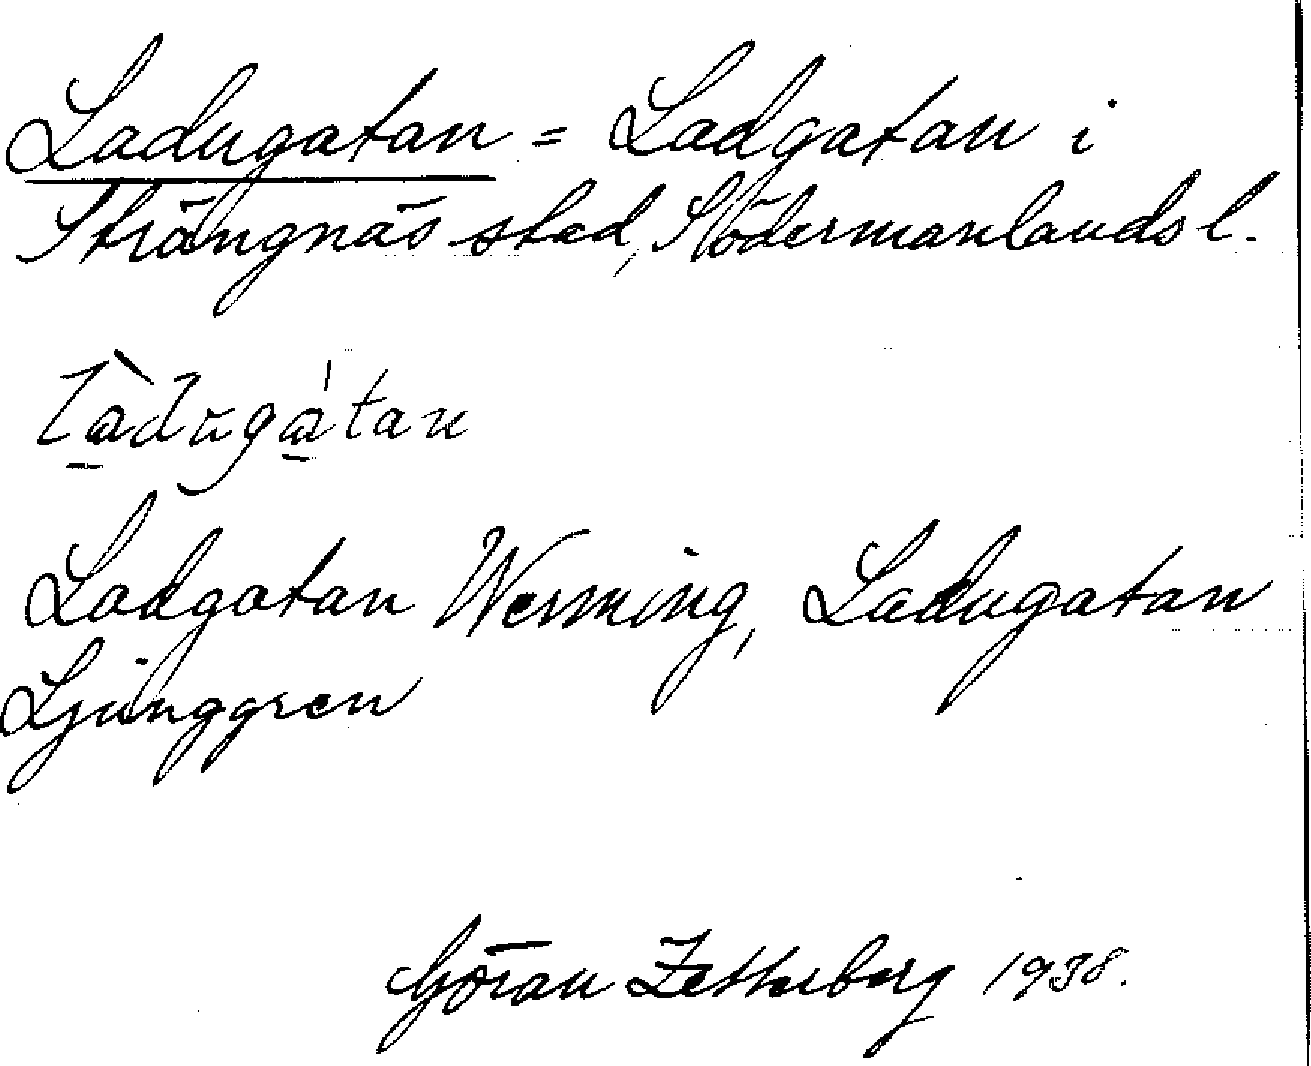 Ladugatan = Ladgatan i
Strängnäs stad, Södermanlands l.
làdugàtan
Ladgatan Werming, Ladugatan
Ljunggren
Göran Zetterberg 1938.